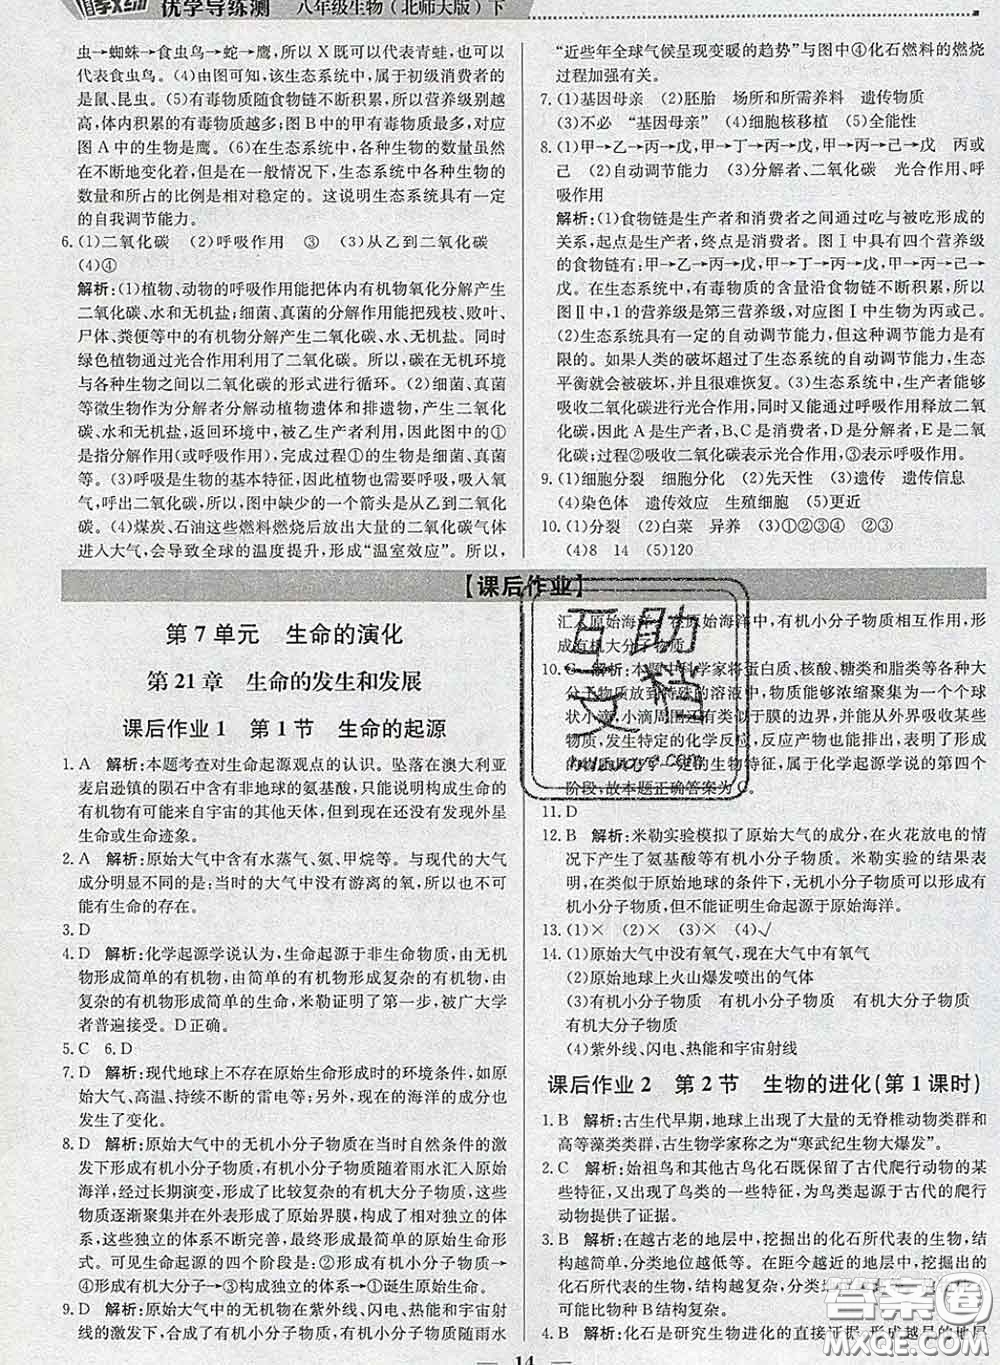 优学导练测 八年级生物(北师大版)下
虫→蜘蛛→食虫鸟→蛇→鹰,所以X既可以代表青蛙,也可以
代表食虫鸟。(4)由图可知,该生态系统中,属于初级消费者的
是鼠、昆虫。(5)有毒物质随食物链不断积累,所以营养级别越
高,体内积累的有毒物质越多;图B中的甲有毒物质最多,对应
图A中的生物是鹰。(6)在生态系统中,各种生物的数量虽然
在不断地变化着,但是在一般情况下,生态系统中各种生物的
数量和所占的比例是相对稳定的。这说明生态系统具有一定
的自我调节能力。
6. (1)二氧化碳 (2)呼吸作用 ③ (3)从乙到二氧化碳
(4)④
解析:(1)植物、动物的呼吸作用能把体内有机物氧化分解产生
二氧化碳、水和无机盐;细菌、真菌的分解作用能把残枝、败叶、
尸体、粪便等中的有机物分解产生二氧化碳、水、无机盐。同时
绿色植物通过光合作用利用了二氧化碳。所以,碳在无机环境
与各种生物之间以二氧化碳的形式进行循环。(2)细菌、真菌
等微生物作为分解者分解动植物遗体和排遗物,产生二氧化
碳、水和无机盐,返回环境中,被乙生产者利用,因此图中的①
是指分解作用(或呼吸作用),完成过程①的生物是细菌、真菌。
(3)呼吸是生物的基本特征,因此植物也能够呼吸,吸入氧
气,呼出二氧化碳,所以图中缺少的一个箭头是从乙到二氧化
碳。(4)煤炭、石油这些燃料燃烧后放出大量的二氧化碳气体
进入大气,会导致全球的温度提升,形成“温室效应”。所以,
“近些年全球气候呈现变暖的趋势”与图中④化石燃料的燃烧
过程加强有关。
7. (1)基因母亲 (2)胚胎 场所和所需养料 遗传物质
(3)不必 “基因母亲” (4)细胞核移植 (5)全能性
8. (1)甲→乙→丙→戊,甲→丁→丙→戊,甲→丙→己 丙或
己 (2)自动调节能力 (3)分解者、二氧化碳 光合作用、呼
吸作用
解析:(1)食物链是生产者和消费者之间通过吃与被吃形成的
关系,起点是生产者,终点是消费者。图Ⅰ中具有四个营养级
的食物链有:甲→乙→丙→戊,甲→丁→丙→戊,甲→丙→戊。
在生态系统中,有毒物质的含量沿食物链不断积累,所以
图Ⅱ中,1的营养级是第三营养级,对应图Ⅰ中生物为丙或己。
(2)生态系统具有一定的自动调节能力,但这种能力是有
限的。如果人类的破坏超过了生态系统的自动调节能力,生态
平衡就会被破坏,并且很难恢复。(3)生态系统中,生产者能够
吸收二氧化碳进行光合作用,同时又能通过呼吸作用释放二氧
化碳,因此A是生产者,B、C是消费者,D是分解者,E是二氧化
碳;过程②吸收二氧化碳表示光合作用,③表示呼吸作用。
9. (1)细胞分裂 细胞分化 (2)先天性 (3)遗传 遗传信息
(4)染色体 遗传效应 生殖细胞 (5)更近
10. (1)分裂 (2)白菜 异养 (3)①②③④ ②③
(4)8 14 (5)120
【课后作业】
第7单元 生命的演化
第21章 生命的发生和发展
课后作业1 第1节 生命的起源
1. A 解析:本题考查对生命起源观点的认识。坠落在澳大利亚
麦启逊镇的陨石中含有非地球的氨基酸,只能说明构成生命的
有机物有可能来自宇宙的其他天体,但没有发现过发现外星
生命或生命迹象。
2. A 解析:原始大气中含有水蒸气、氨、甲烷等。与现代的大气
成分明显不同的是:当时的大气中没有游离的氧,所以不可能
有生命的存在。
3. D
4. D 解析:化学起源学说认为,生命起源于非生命物质,由无机
物形成简单的有机物,由简单的有机物形成复杂的有机物,由
复杂的有机物形成简单的生命,米勒证明了第一步,被广大学
者普遍接受。D正确。
5. C 6. D
7. D 解析:现代地球上不存在原始生命形成时的环境条件,如
原始大气、高温、持续不断的雷电等;另外,现在的海洋的成分
也与当时不同。
8. D 解析:原始大气中的无机小分子物质在当时自然条件的激
发下形成有机小分子物质,有机小分子物质随着雨水汇入原始
海洋,经过长期演变,形成了比较复杂的有机大分子物质,这些
物质逐渐聚集并在外表形成了原始界膜,构成了独立的体系,
这些独立的体系不断完善,最终形成最简单的原始生
命。可见生命起源的四个步骤是:②形成有机小分子物质→
④形成有机大分子→③构成独立的体系→①诞生原始生命。
9. D 解析:原始大气中的无机物在紫外线、闪电、热能和宇宙射
线的激发下,合成了有机小分子物质,有机小分子物质随雨水
汇入原始海洋;在原始海洋中,有机小分子物质相互作用,形
成有机大分子物质。
10. C 解析:本题中科学家将蛋白质、核酸、糖类和脂类等各种大
分子物质放到特殊的溶液中,大分子物质能够浓缩聚集为一个个球
状小滴,小滴周围还有类似于膜的边界,并能从外界吸收某些
物质,发生特定的化学反应,反应产物也能排出,有机大分子
的物质表现出一定的生物特征,属于化学起源学说的第四个
阶段,故本题正确答案为C。
11. D
12. B 解析:米勒实验模拟了原始大气的成分,在火花放电的情
况下产生了氨基酸等有机小分子物质。米勒实验的结果表
明,在类似于原始地球的条件下,无机小分子物质可以形成有
机小分子物质,但不能证明生命起源于原始海洋。
13. (1)× (2)× (3)× (4)√
14. (1)原始大气中没有氧气,现在大气中有氧气
(2)原始地球上火山爆发喷出的气体
(3)有机小分子物质 有机小分子物质 有机大分子物质
有机大分子物质
(4)紫外线、闪电、热能和宇宙射线
课后作业2 第2节 生物的进化(第1课时)
1. B 解析:古生代早期,地球上出现了大量的无脊椎动物类群和
高等藻类类群,古生物学家称之为“寒武纪生物大爆发”。
2. C 解析:始祖鸟和其他古鸟化石既保留了古代爬行动物的某
些特征,又出现了鸟类的一些特征,为鸟类起源于古代的爬行
动物提供了证据。
3. B 解析:在越古老的地层中,挖掘出的化石所代表的生物,
结构越简单。在距今越近的地层中,挖掘出的
化石所代表的生物,结构越复杂。
可能比物种B结构复杂。
4. B 解析:化石是研究生物进化的直接证据,形成越早的地层
14
互助文档
hdzuoye.com
答案圈
MXQE.COM